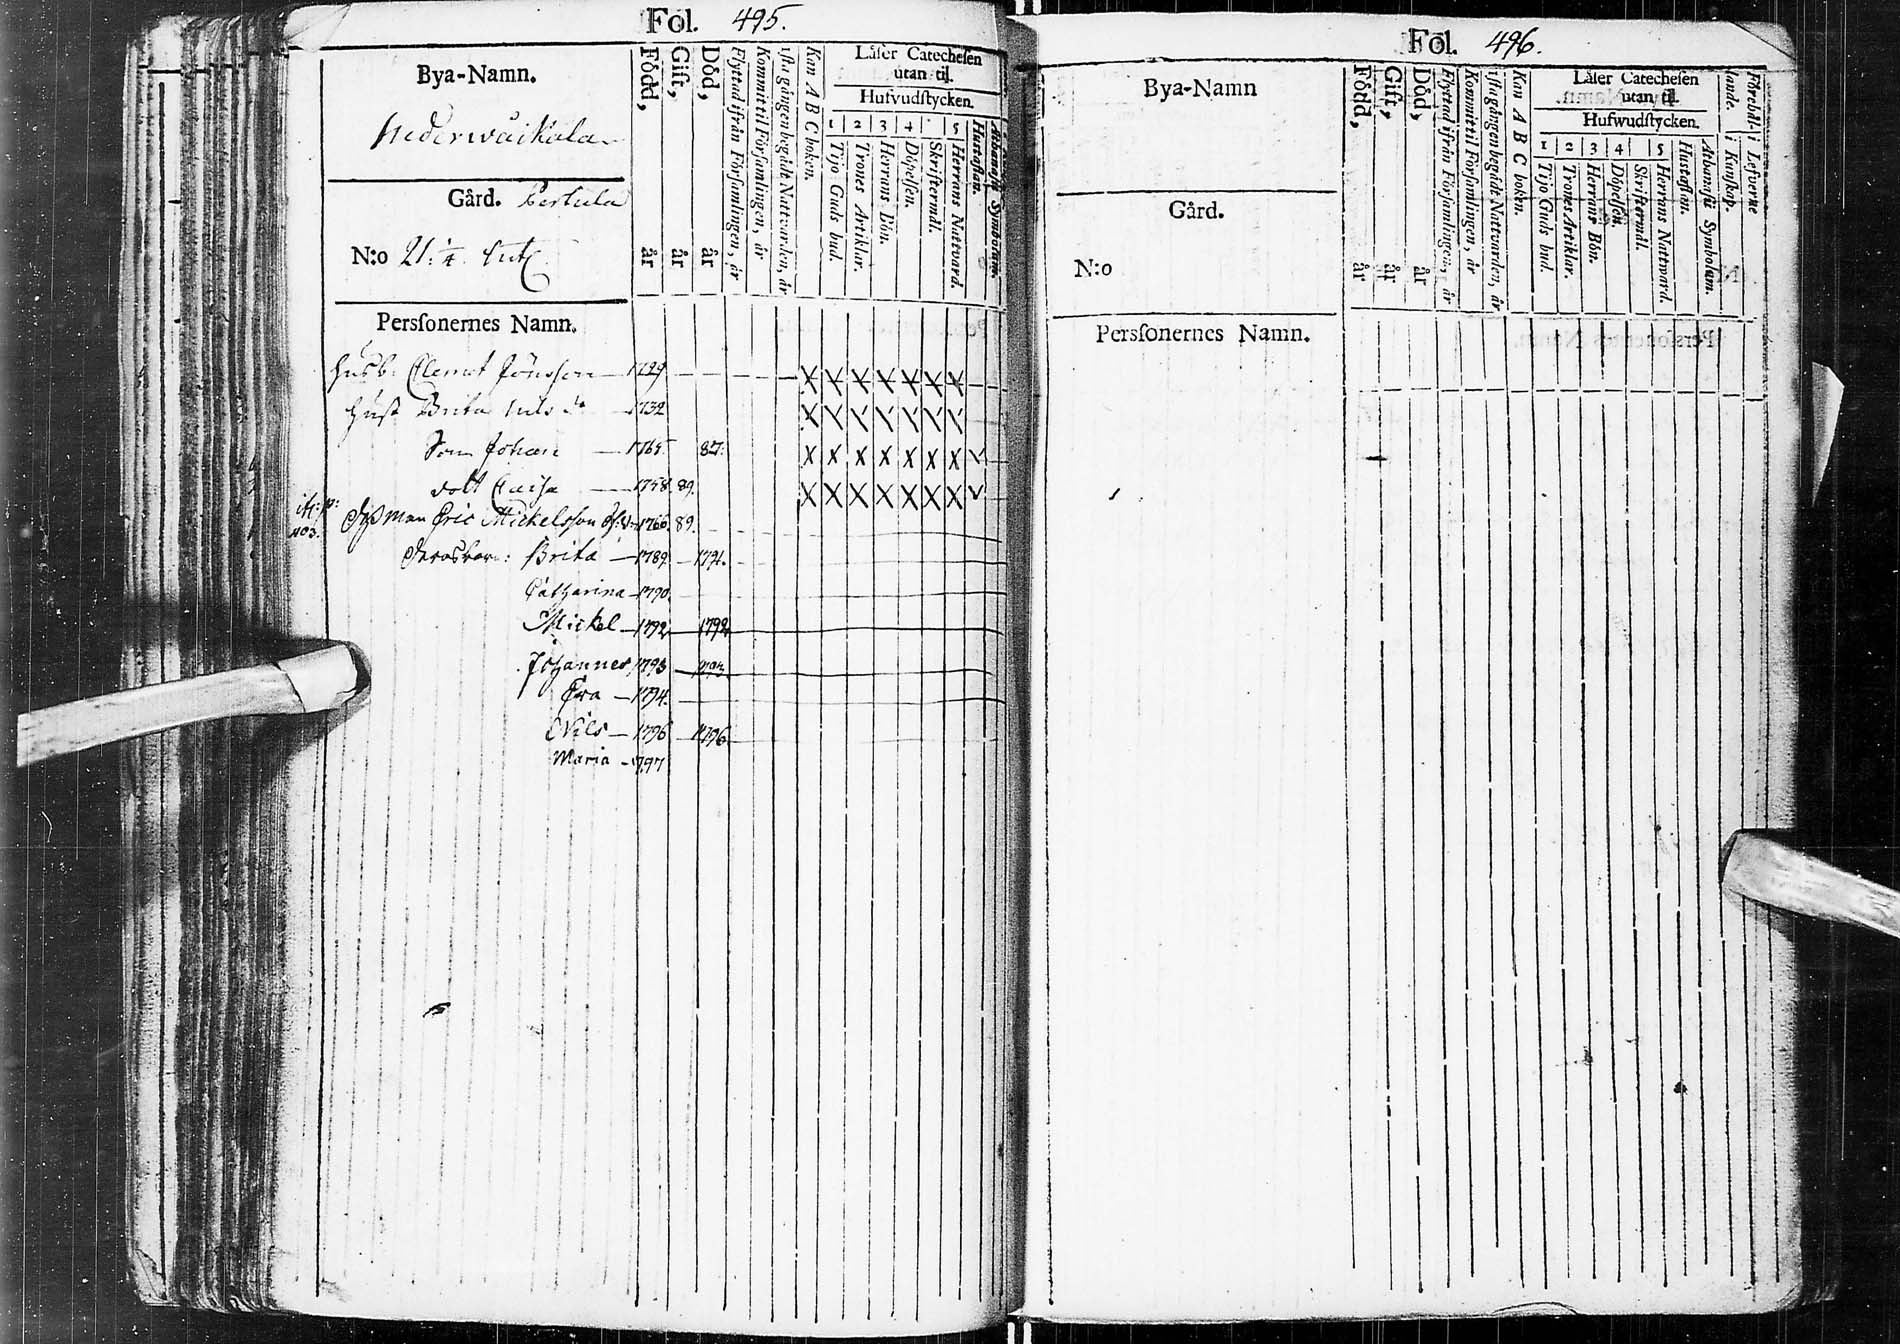 Fol. 495.
Bya-Namn.
Nederwåikola
Gård. Perhela
N:o 21: 1/4
Född, år
Gift, år
Död, år
Flyttad ifrån Församlingen, år
Kommit til Församlingen, år
1sta gången begådt Nattvarden, år
Kan A B C boken.
Läser Catechesen
utan til.
Hufvudstycken.
1 2 3 4 5
Tijo Guds bud.
Trones Artiklar.
Herrans Bön.
Döpelsen.
Skriftermål.
Herrans Nattvard.
Hustaflan.
Athanasii Symbolum.
Perssonernes Namn.
Husb: Clemet Jönsson 1729
Hust Brita Nils dr 1732
Son Johan 1765 87.
dott Caisa 1768 89.
Eric Mickelsson 1766. 89.
403.
Brita 1789. 1791.
Catharina 1790.
Mickel 1792 1792
Johannes 1793
Eva 1794.
Nils 1796 1796
Maria 1797
Fol. 496.
Bya-Namn
Gård.
N:o
Född, år
Gift, år
Död, år
Flyttad ifrån Församlingen, år
Kommit til Församlingen, år
1sta gången begådt Nattvarden, år
Kan A B C boken.
Läser Catechesen
utan til.
Hufwudstycken.
1 2 3 4 5
Tijo Guds bud.
Trones Artiklar.
Herrans Bön.
Döpelsen.
Skriftermål.
Herrans Nattward.
Hustaflan.
Athanasii Symbolum.
i Kunskap.
i Lefverne
Perssonernes Namn.